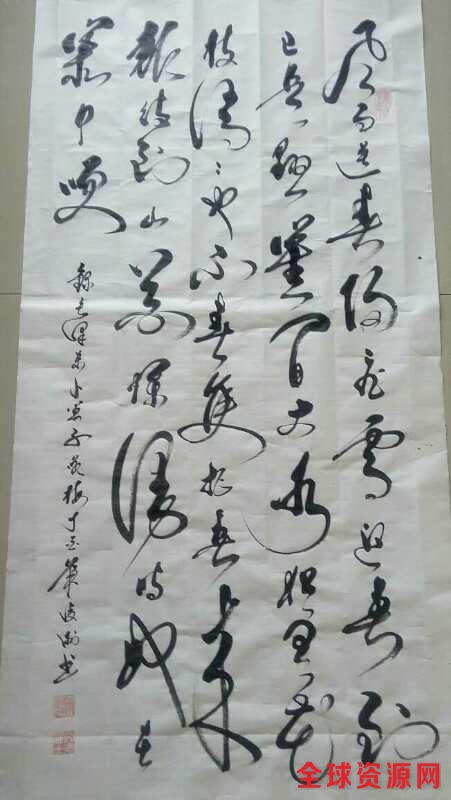 风雨送春归飞雪迎春到
已是悬崖百丈冰犹有花
枝俏〻也不春隻把春来
报待到山花烂漫时她在
丛中笑
録毛泽东卜算子咏梅 书
全球资源网